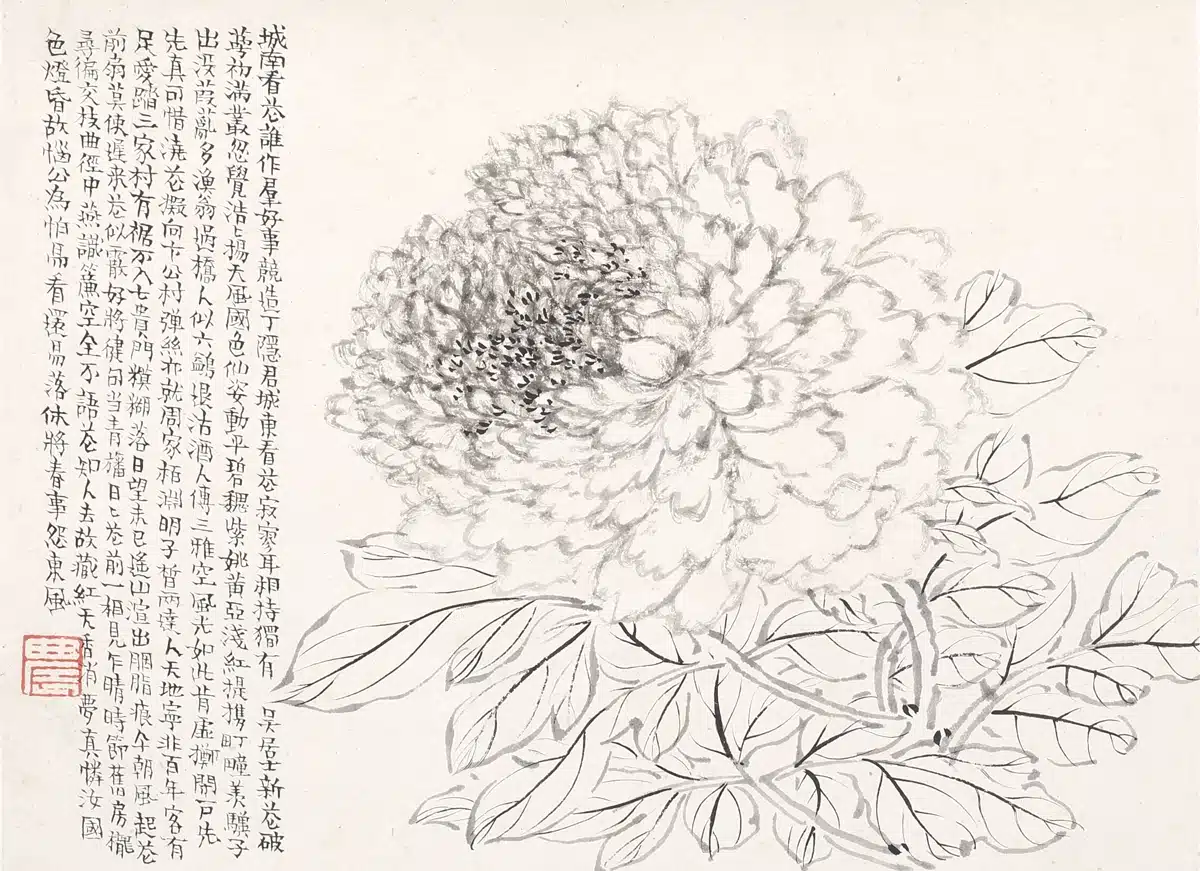 城南看花誰作羣好事競造丁隱君城東看花寂寥耳相待獨有吳居士新花破
萼初滿叢忽覺浩〻揚天風國色仙姿動平碧魏紫姚黃亞淺紅提攜町疃羨驥子
出沒葭亂多漁翁過橋人似六鷁退沽酒人傳三雅空風光如此肯虛擲閉戶先
先真可惜澆花擬向卞公村彈絲亦就周家栢淵明子皙兩達人天地寧非百年客有
足愛踏三家村有裾不入七貴門糢糊落日望未已遙山渲出胭脂痕今朝風起花
前扇莫使遲來花似霰好將健句當青旛日〻花前一相見乍晴時節舊房櫳
尋徧交枝曲徑中燕識簾空全不語花知人去故藏紅天香消夢真憐汝國
色燈昏故惱公為怕易看還易落休將春事怨東風